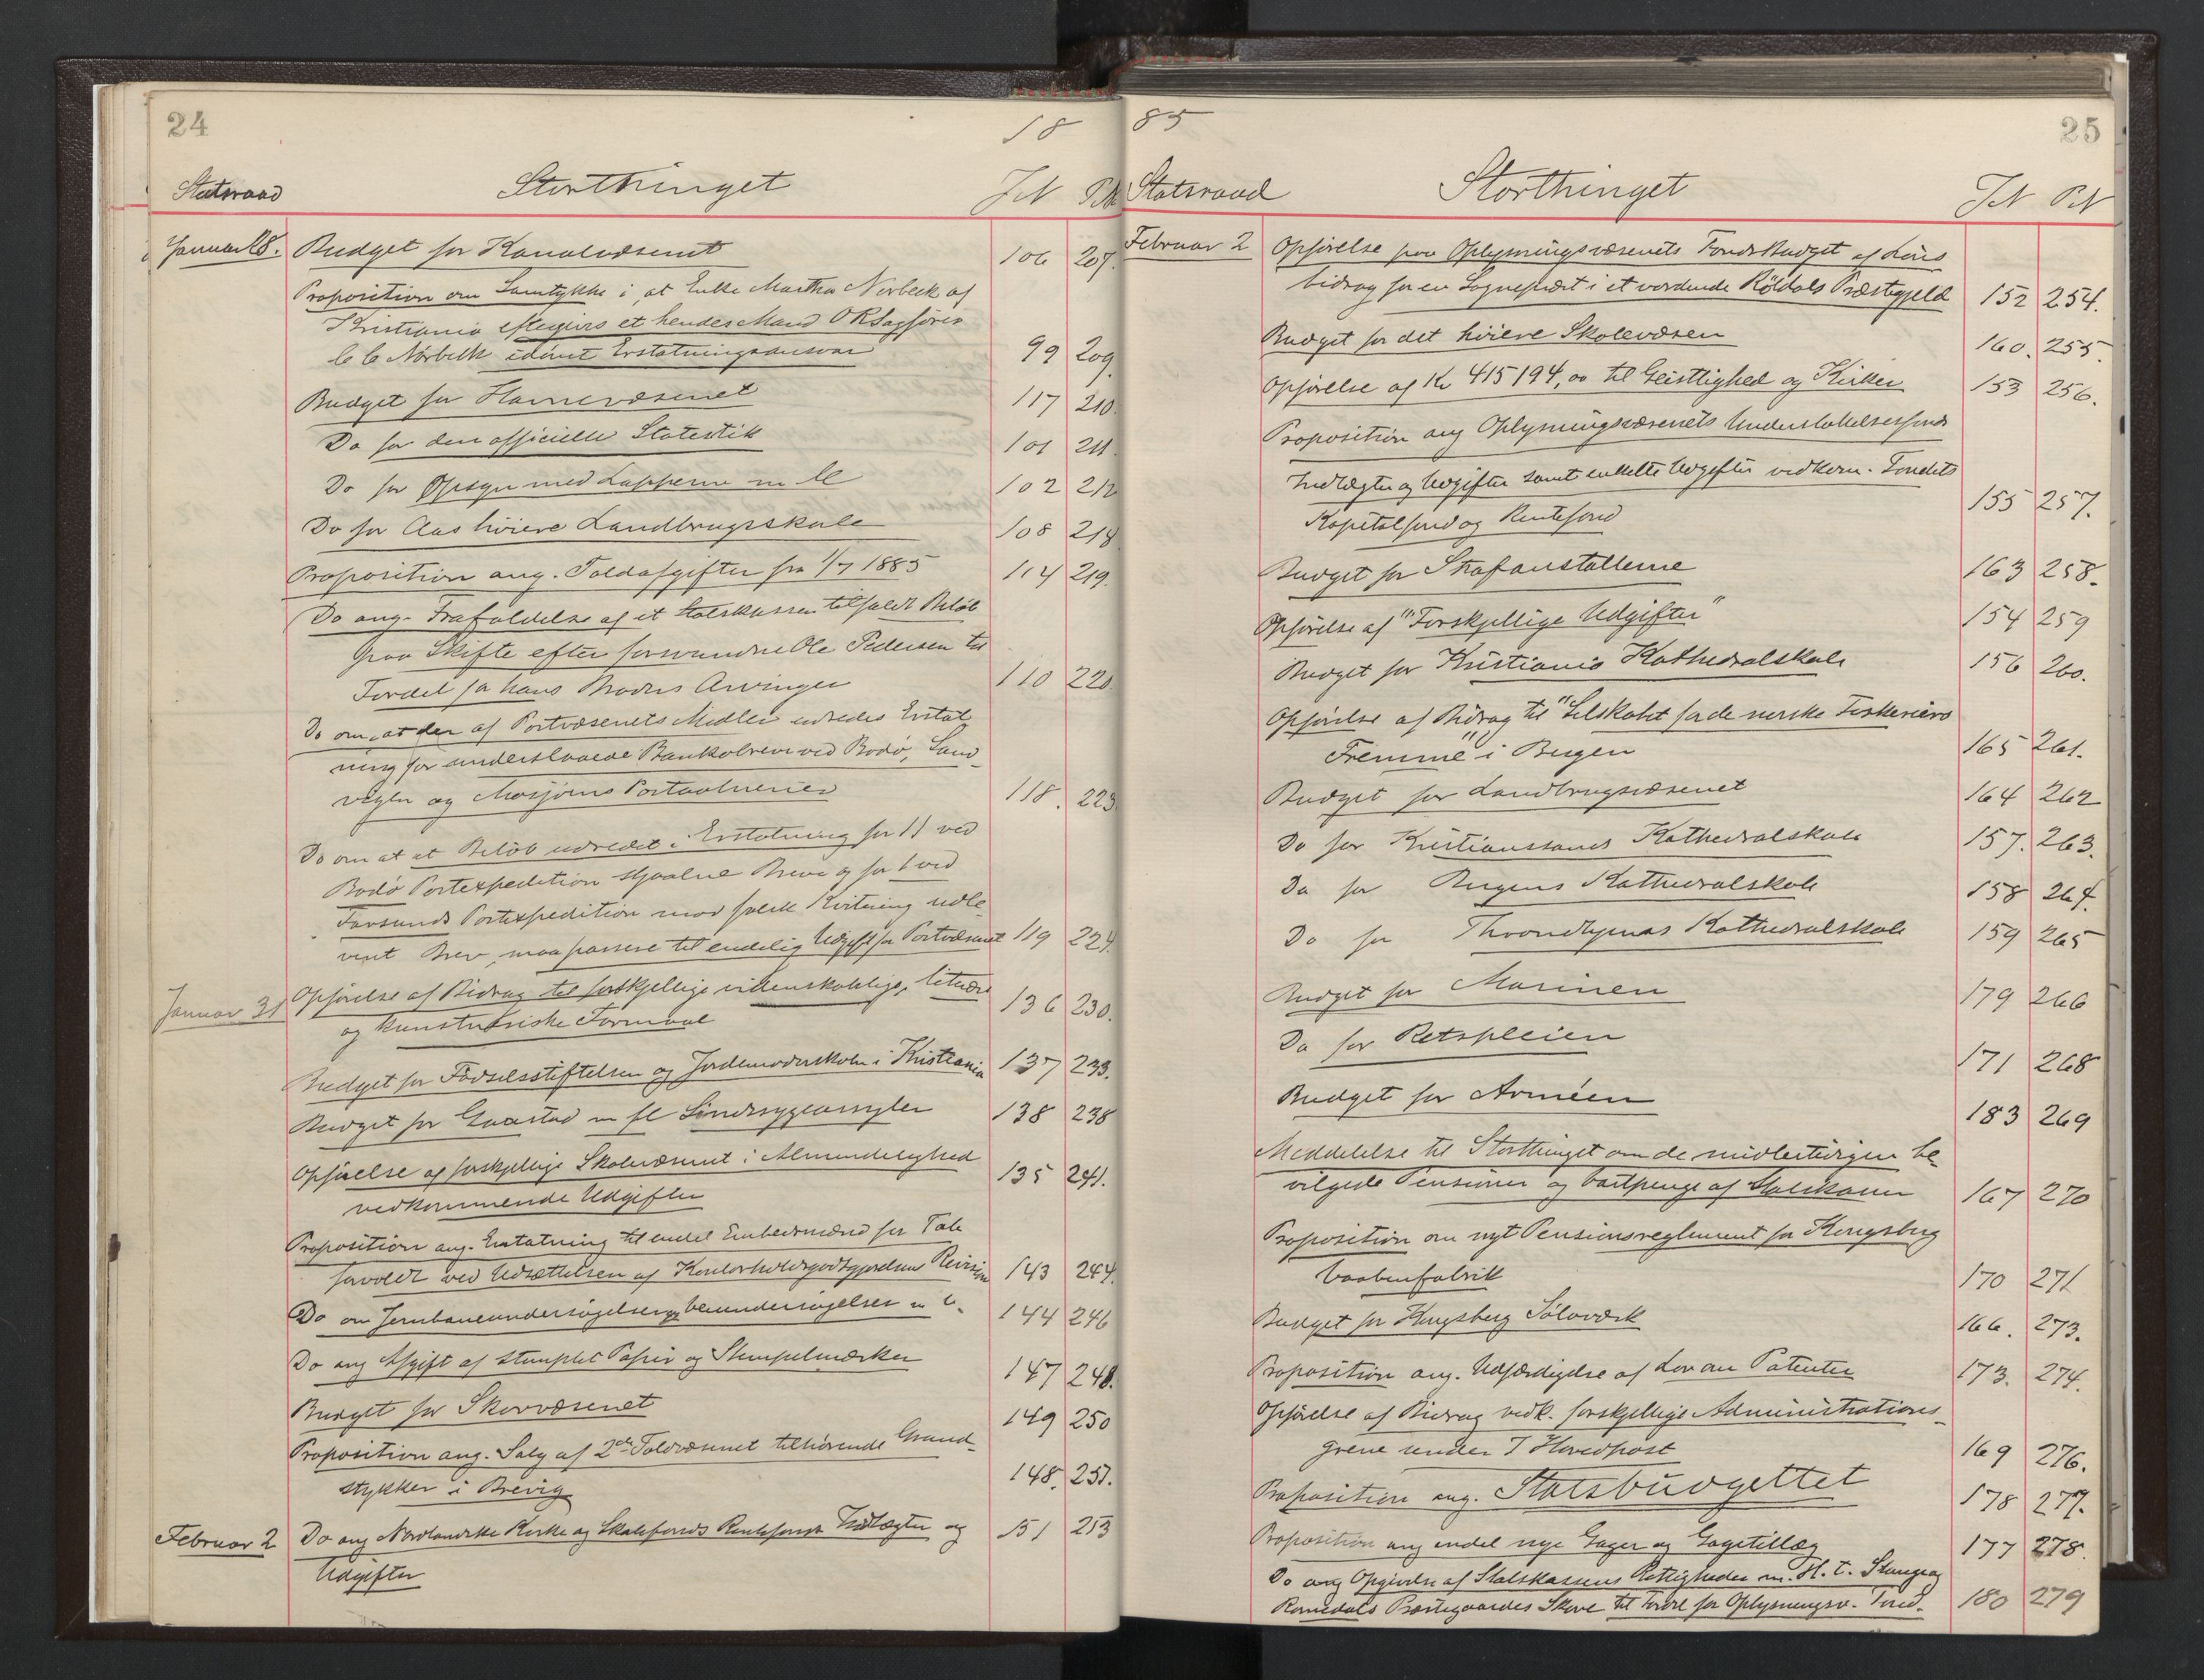 24
18
Statsraad Storthinget JN PN
Januar 28. Budget for Kanalvæsenet 106 207.
Proposition om Samtykke i, at Enke Martha Nørbeck af
Kristiania eftergives et hendes Mand ORSagfører
C C Nørbeck idømt Erstatningsansvar 99 209.
Budget for Havnevæsenet 117 210.
Do for den officielle Statestik 101 211.
Do for Opsyn med Lapperne m M 102 212
Do for Aas høiere Landbrugsskole 108 218.
Proposition ang. Toldafgifter fra 1/7 1885 114 219.
Do ang. Frafaldelse af et Statskassen tilfaldt Beløb
paa Skifte efter forsvundne Ole Pedersen til
Fordel for hans Broders Arvinger 110 220.
Do om, at der af Postvæsenets Midler udredes Erstat
ning for underslaaede Bankobreve ved Bodø, Sand
vigen og Mosjøens Postaabnerier 118. 223.
Do om at et Beløb udredet i Erstatning for 11 ved
Bodø Postexpedition stjaalne Breve og for 1 ved
Farsunds Postexpedition mod falsk Kvitering udle
veret Brev, maa passere til endelig Udgift for Postvæsenet 119 224.
Januar 31 Opførelse af Bidrag til forskjellige videnskabelige, literære
og kunstneriske Formaal 136 230.
Budget for Fødselsstiftelsen og Jordemoderskolen i Kristiania 137 233.
Budget for Gaustad m fl Sindssygeasyler 138 238
Opførelse af forskjellige Skolevæsenet i Almindelighed
vedkommende Udgifter 135 241.
Proposition ang. Erstatning til endel Embedsmænd for Tab
forvoldt ved Udsættelsen af Kontorholdsgodtgjørelsens Revision 143 244.
Do om Jernbaneundersøgelser m C. 144 246
Do ang Afgift af stemplet Papir og Stempelmærker 147 248.
Budget for Skovvæsenet 149 250
Proposition ang. Salg af 2de Toldvæsenet tilhørende Grund-
stykker i Brevig 148. 251.
Februar 2 Do ang Nordlandske Kirke og Skolefonds Rentefonds Indtægter og 151 253
Udgifter
85
25
Statsraad Storthinget JN PN
Februar 2 Opførelse paa Oplysningsvæsenets Fonds Budget af Løns
bidrag for en Sognepræst i et vordende Røldals Præstegjeld 152 254.
Budget for det høiere Skolevæsen 160. 255.
Opførelse af Kr 415194,00 til Geistlighed og Kirker 153 256.
Proposition ang Oplysningsvæsenets Understøttelsesfonds
Indtægter og Udgifter samt enkelte Udgifter vedkom. Fondets
Kapitalfond og Rentefond 155 257.
Budget for Strafanstalterne 163 258.
Opførelse af "Forskjellige Udgifter" 154 259
Budget for Kristiania Kathedralskole 156 260.
Opførelse af Bidrag til "Selskabet for de norske Fiskeriers
Fremme" i Bergen 165 261.
Budget for Landbrugsvæsenet 164 262
Do for Kristianssands Kathedralskole 157. 263.
Do for Bergens Kathedralskole 158 264.
Do for Throndhjems Kathedralskole 159 265
Budget for Marinen 179 266
Do for Retspleien 171 268
Budget for Arméen 183 269
Meddelelse til Storthinget om de midlertidigen be-
vilgede Pensioner og Vartpenge af Statskassen 167 270
Proposition om nyt Pensionsreglement for Kongsberg
Vaabenfabrik 170 271
Budget for Kongsberg Sølvværk 166. 273.
Proposition ang. Udfærdigelse af Lov om Patenter 173. 274.
Opførelse af Bidrag vedk. forskjellige Administrations-
grene under 7 Hovedpost 169 276.
Proposition ang. Statsbudgettet 178 277.
Proposition ang endel nye Gager og Gagetillæg 177 278.
Do ang Opgivelse af Statskassens Rettigheder m. H. t. Stange og
Romedals Præstegaardes Skove til Fordel for Oplysningsv. Fond. 180 279